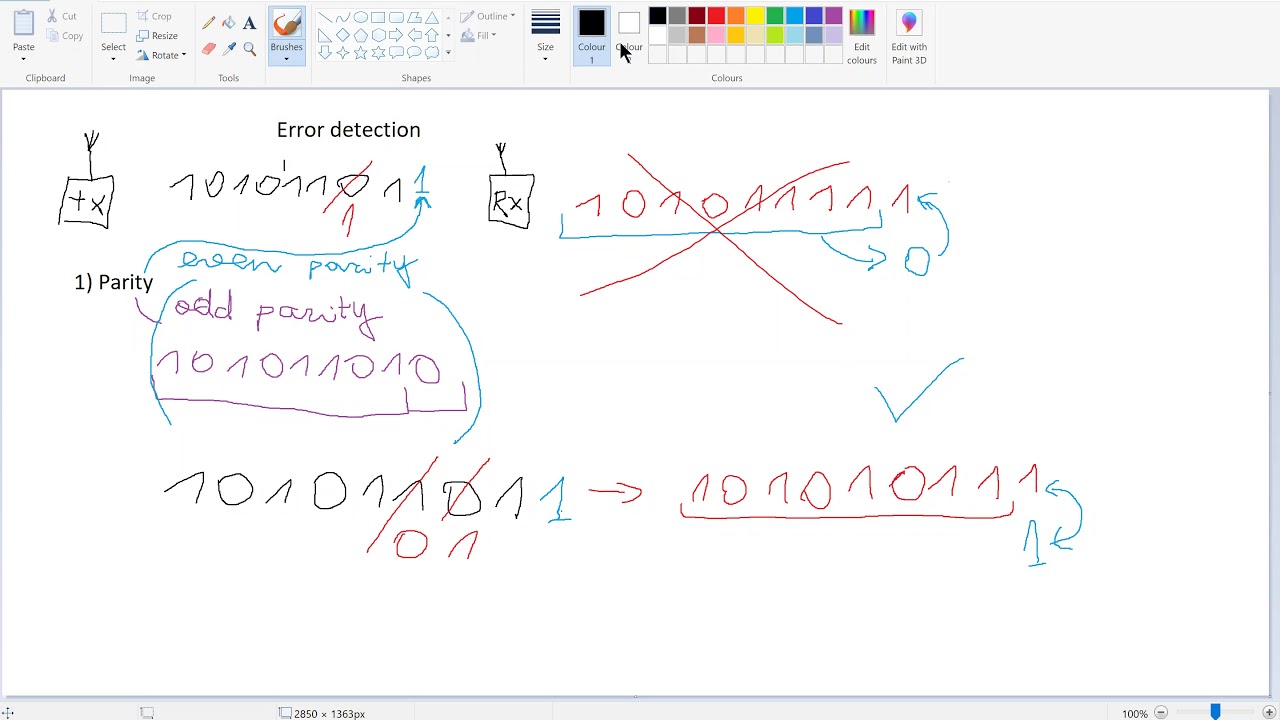 Paste
Cut
Copy
Select
Crop
Resize
Rotate
A
Brushes
Outline
Fill
Size
Colour
1
Colour
Edit
colours
Edit with
Paint 3D
Clipboard
Image
Tools
Shapes
Colours
Error detection
tx
10101101 1
1
Rx
101011111
0
even parity
1) Parity
odd parity
101011010
101011011
01
101010111
1
2850 × 1363px
100%